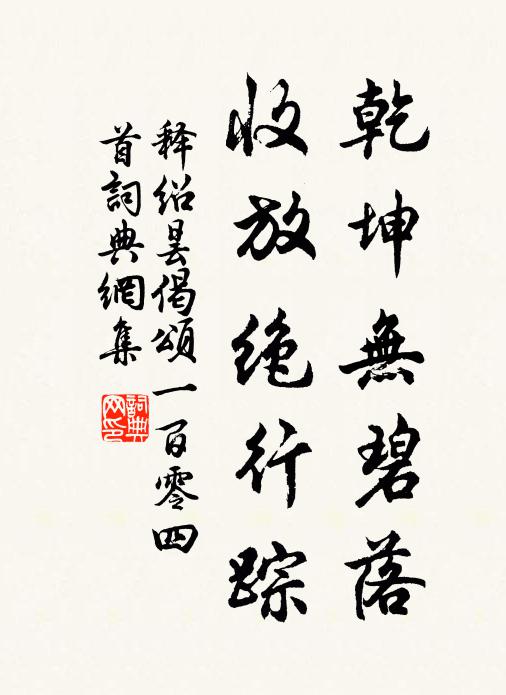 乾坤無碧落
收放绝行踪
释绍昙偈頌一百零四
首詞典網集
詞典网印